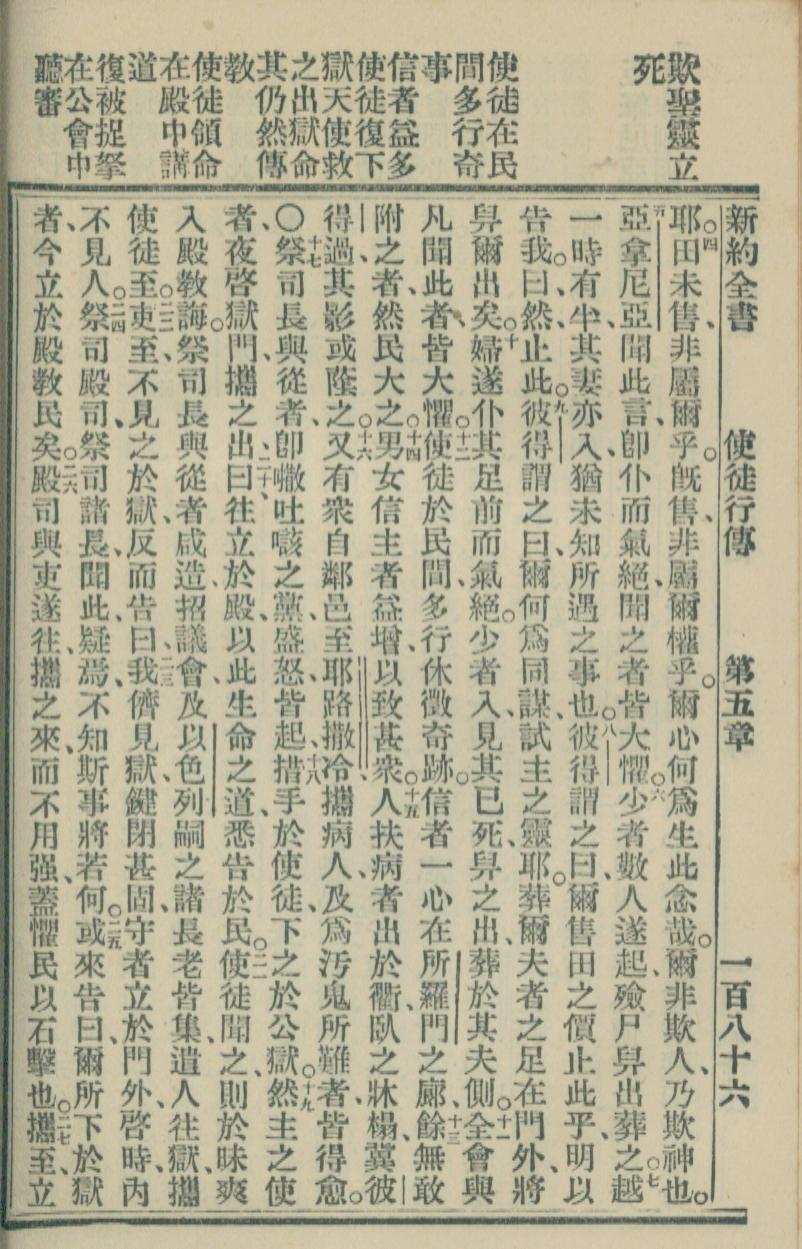 欺聖靈立
死
使徒在民
間多行奇
事
信者益多
使徒復下
獄天使救
之出獄命
其仍然傳
教
使徒領命
在殿中講
道
復被捉拏
在公會中
聽審
新約全書 使徒行傳 第五章 一百八十六
耶。四田未售、非屬爾乎。旣售、非屬爾權乎。爾心何爲生此念哉。爾非欺人、乃欺神也。
五亞拿尼亞聞此言、卽仆而氣絕、聞之者皆大懼。六少者數人遂起、殮尸舁出葬之。七越
一時有半、其妻亦入、猶未知所遇之事也。八彼得謂之曰、爾售田之價止此乎、明以
告我。曰、然、止此。九彼得謂之曰、爾何爲同謀、試主之靈耶。葬爾夫者之足在門外、將
舁爾出矣。十婦遂仆其足前而氣絕。少者入、見其已死、舁之出、葬於其夫側。十一全會與
凡聞此者、皆大懼。十二使徒於民間、多行休徵奇跡。信者一心在所羅門之廊、十三餘無敢
附之者、然民大之。十四男女信主者益增、以致甚衆。十五人扶病者出於衢、臥之牀榻、冀彼
得過其影或蔭之。十六又有衆自鄰邑至耶路撒冷、攜病人、及爲汚鬼所難者、皆得愈。
〇十七祭司長與從者、卽㘔吐㗉之黨、盛怒皆起、十八措手於使徒、下之於公獄。十九然主之使
者、夜啓獄門、攜之出曰、二十、往立於殿、以此生命之道、悉告於民。二一使徒聞之、則於昧爽
入殿教誨。祭司長與從者咸造、招議會、及以色列嗣之諸長老皆集、遣人往獄、攜
使徒至。二二吏至、不見之於獄、反而告曰、二三我儕見獄鍵閉甚固、守者立於門外、啓時、內
不見人。二四祭司殿司、祭司諸長、聞此、疑焉、不知斯事將若何。二五或來告曰、爾所下於獄
者、今立於殿教民矣。二六殿司與吏遂往、攜之來、而不用强、蓋懼民以石擊也。二七攜至、立